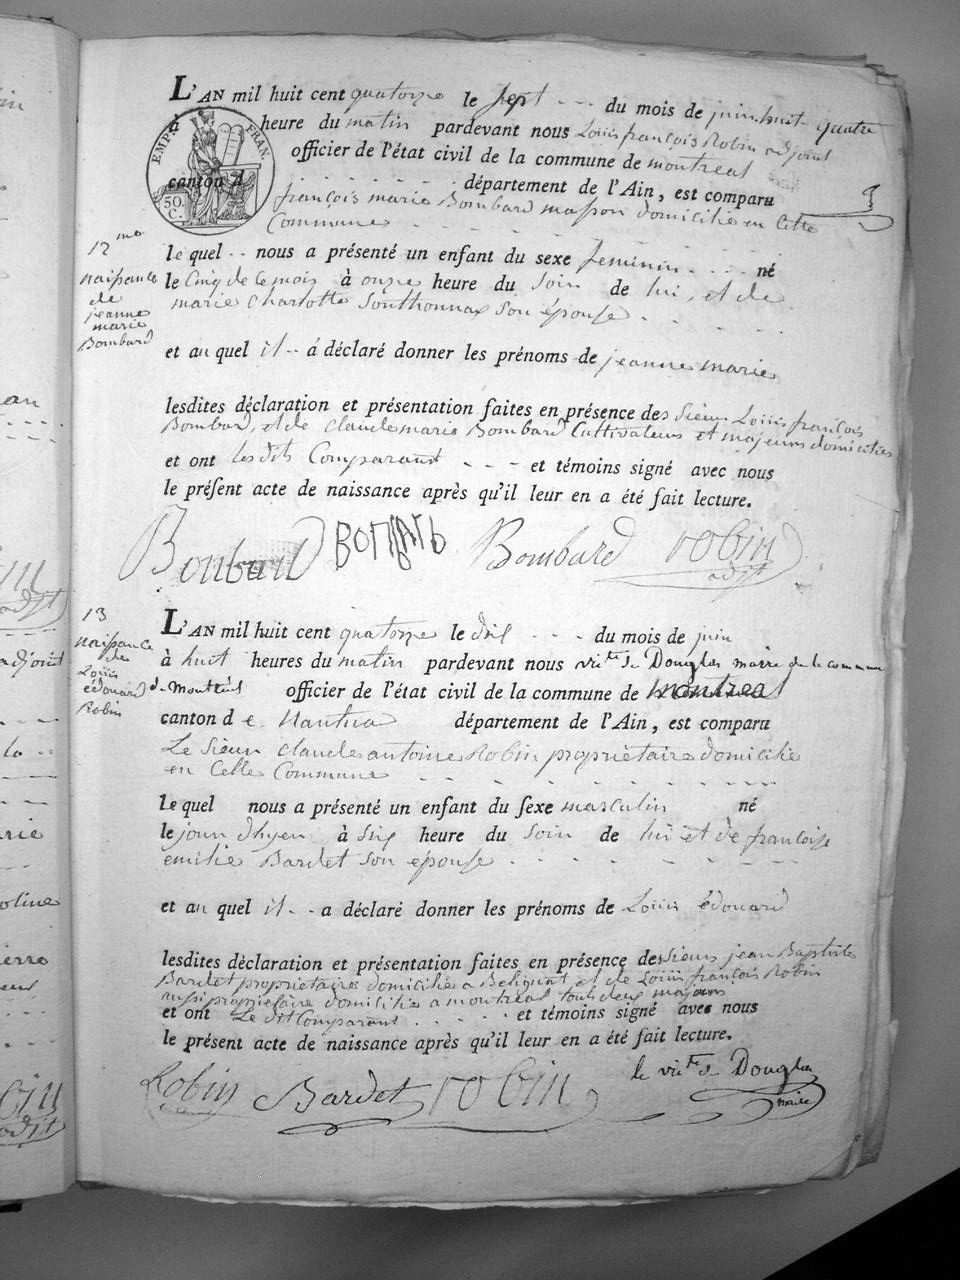 L'AN mil huit cent quatorze le sept - - - du mois de juin huit quatre
à heure du matin pardevant nous Louis françois Robin adjoint
EMP. FRAN.
officier de l'état civil de la commune de montreal
canton d département de l'Ain, est comparu
50. C.
françois marie Bombard masson domicilié en Cette
Commune
12me
naissance
de
jeanne
marie
Bombard
le quel - - nous a présenté un enfant du sexe feminin - - - né
le Cinq de ce mois à onze heure du soir de lui, et de
marie Charlotte Southonnax son épouse
et au quel il - - à déclaré donner les prénoms de jeanne marie
lesdites déclaration et présentation faites en présence des sieurs Louis françois
Bombard, et de claude marie Bombard Cultivateurs et majeurs domiciliés
et ont les dits Comparant - - - et témoins signé avec nous
le présent acte de naissance après qu'il leur en a été fait lecture.
Bombard Bombard robin
adjt
13
naissance
de
Louis
édouard
Robin
L'AN mil huit cent quatorze le dix - - - du mois de juin
à huit heures du matin pardevant nous victe de Douglas maire de la commune
de Montréal officier de l'état civil de la commune de montreal
canton de Nantua département de l'Ain, est comparu
Le Sieur claude antoine Robin propriétaire domicilié
en Cette Commune
le quel nous a présenté un enfant du sexe masculin né
le jour d'hyer à six heure du soir de lui et de françoise
emilie Bardet son épouse
et au quel il - - a déclaré donner les prénoms de Louis édouard
lesdites déclaration et présentation faites en présence des sieurs jean Baptiste
Bardet propriétaire domicilié a Belignat et de Louis françois Robin
aussi propriétaire domicilié a montréal tout deux majeurs
et ont Le dit Comparant et témoins signé avec nous
le présent acte de naissance après qu'il leur en a été fait lecture.
Robin Bardet robin le victe de Douglas
maire